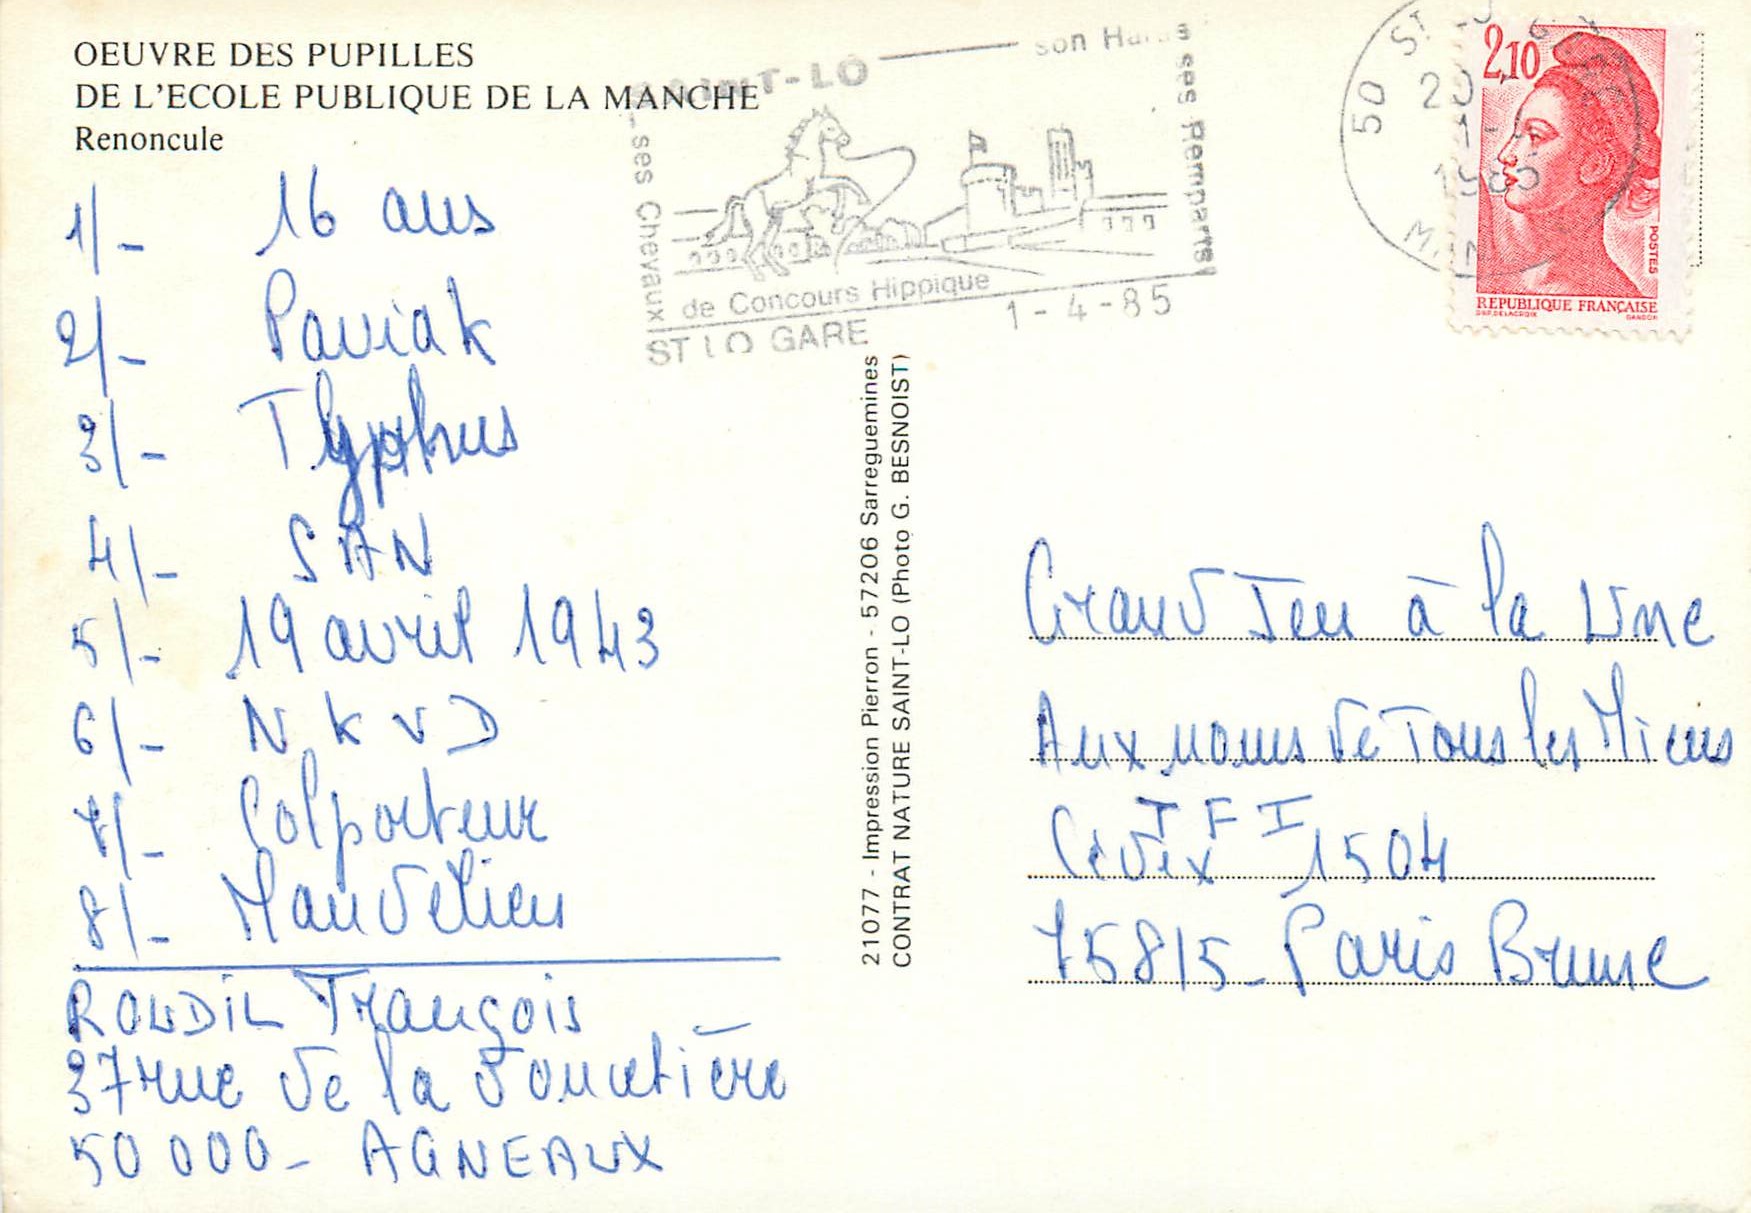 OEUVRE DES PUPILLES
DE L'ECOLE PUBLIQUE DE LA MANCHE
Renoncule
1/- 16 ans
2/- Paviak
3/- Typhus
4/- SAN
5/- 19 avril 1943
6/- NKVD
7/- Colporteur
8/- Mandelieu
ROUDIL François
37 rue de la
50 000 - AGNEAUX
21077 - Impression Pierron - 57206 Sarreguemines
CONTRAT NATURE SAINT-LO (Photo G. BESNOIST)
SAINT-LO
son Haras
ses Remparts
ses Chevaux
de Concours Hippique
ST LO GARE
1-4-85
50 ST
20
1-4
1985
2,10
POSTES
REPUBLIQUE FRANÇAISE
D'AP. DELACROIX GANDON
Grand Jeu à la Une
Aux noms de Tous les Miens
TFI
Cedex 1504
75815 - Paris Brune